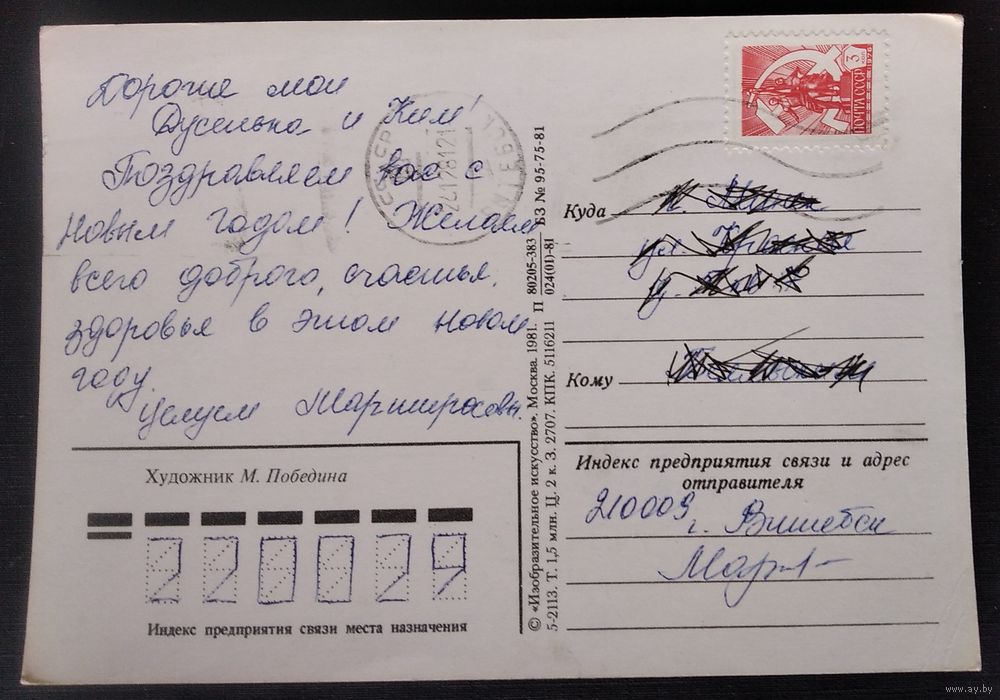 Дорогие мои
Дусенька и Ким!
Поздравляем вас с
Новым годом! Желаем
всего доброго, счастья,
здоровья в этом новом
году.
Целуем Мартиросовы.
ПОЧТА СССР
3 коп
1976
Куда
Кому
Индекс предприятия связи и адрес
отправителя
210009
г. Витебск
Художник М. Победина
220029
Индекс предприятия связи места назначения
© «Изобразительное искусство». Москва. 1981. П 80205-383 024(01)-81 БЗ № 95-75-81
5-2113. Т. 1,5 млн. Ц. 2 к. З. 2707. КПК. 5116211
www.ay.by